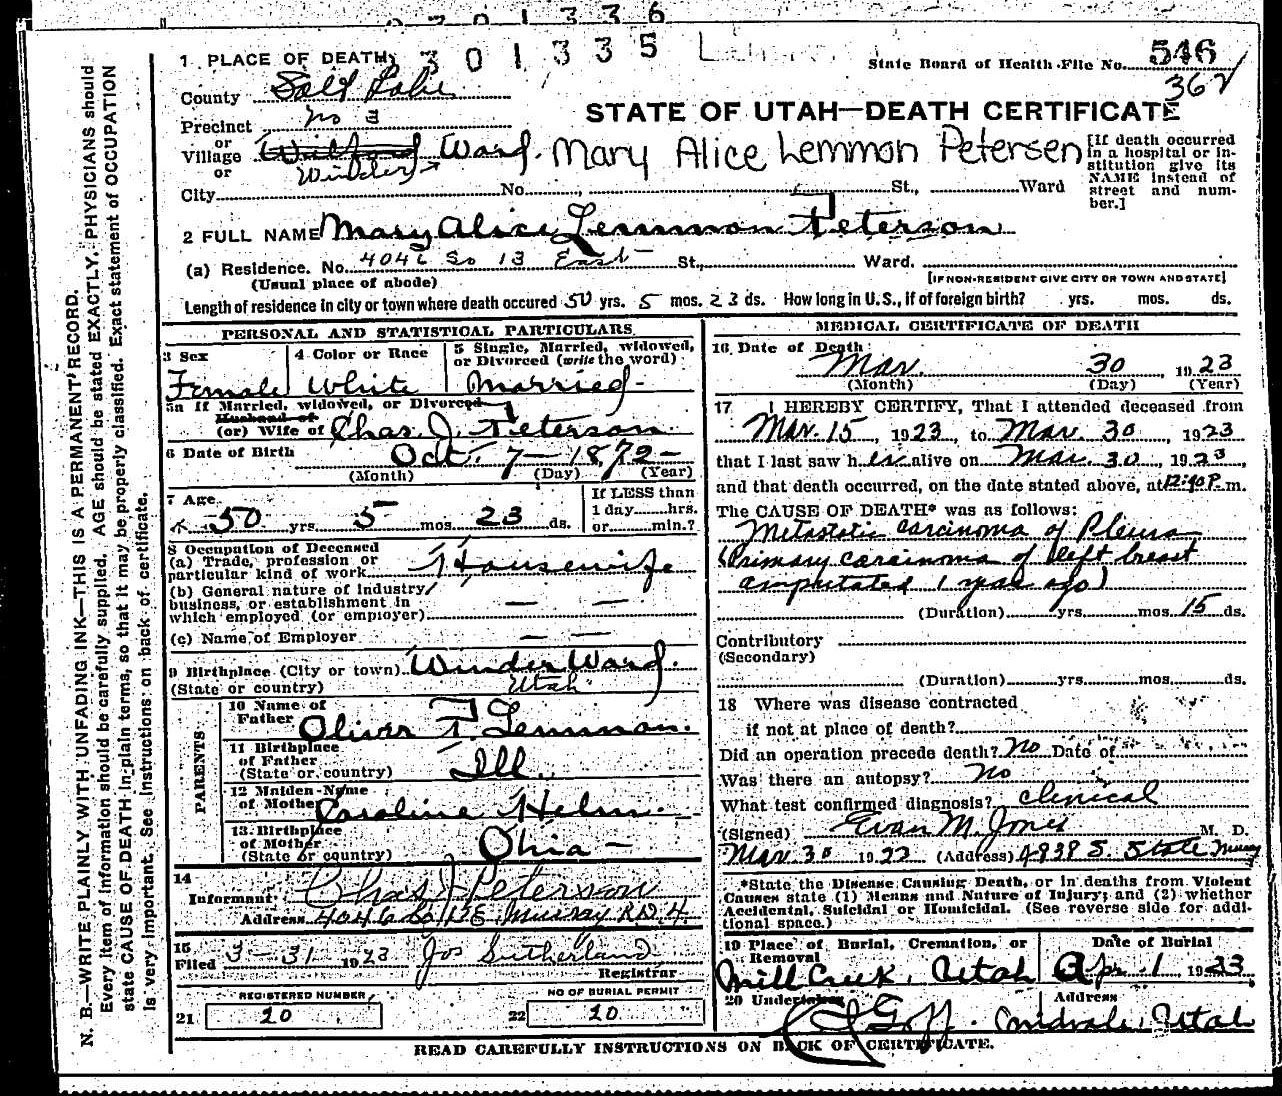 301336
301335
State Board of Health File No. 546
362
1 PLACE OF DEATH
County Salt Lake
STATE OF UTAH—DEATH CERTIFICATE
Precinct No 3
or
Village Wilford Ward. Mary Alice Lemmon Petersen
Winder
or
City No. St., Ward
[If death occurred in a hospital or institution give its NAME instead of street and number.]
2 FULL NAME Mary Alice Lemmon Peterson
(a) Residence. No. 4046 So 13 East St., Ward.
(Usual place of abode) [IF NON-RESIDENT GIVE CITY OR TOWN AND STATE]
Length of residence in city or town where death occured 50 yrs. 5 mos. 23 ds. How long in U.S., if of foreign birth? yrs. mos. ds.
PERSONAL AND STATISTICAL PARTICULARS
3 Sex Female
4 Color or Race White
5 Single, Married, widowed, or Divorced (write the word) Married
5a If Married, widowed, or Divorced
Husband of
(or) Wife of Chas. J. Peterson
6 Date of Birth Oct. 7 – 1872 –
(Month) (Day) (Year)
7 Age 50 yrs. 5 mos. 23 ds.
If LESS than
1 day hrs.
or min.?
8 Occupation of Deceased
(a) Trade, profession or
particular kind of work Housewife
(b) General nature of industry
business, or establishment in
which employed (or employer) — —
(c) Name of Employer — —
9 Birthplace (City or town) Winder Ward.
(State or country) Utah
PARENTS
10 Name of Father Oliver F. Lemmon.
11 Birthplace of Father (State or country) Ill.
12 Maiden Name of Mother Caroline Helm.
13 Birthplace of Mother (State or country) Ohio –
14
Informant Chas J Peterson
Address 4046 So 13 E Murray R.D. 4
15
Filed 3–31 1923 Jos Sutherland
Registrar
REGISTERED NUMBER
21 20
NO OF BURIAL PERMIT
22 20
MEDICAL CERTIFICATE OF DEATH
16 Date of Death:
Mar. 30, 1923
(Month) (Day) (Year)
17 I HEREBY CERTIFY, That I attended deceased from
Mar. 15, 1923, to Mar. 30, 1923
that I last saw her alive on Mar. 30, 1923,
and that death occurred, on the date stated above, at 12:40 P.m.
The CAUSE OF DEATH* was as follows:
Metastatic carcinoma of Pleura
(Primary carcinoma of left breast
amputated 1 year ago)
(Duration) yrs. mos. 15 ds.
Contributory
(Secondary)
(Duration) yrs. mos. ds.
18 Where was disease contracted
if not at place of death?
Did an operation precede death? No Date of
Was there an autopsy? No
What test confirmed diagnosis? Clinical
(Signed) Evan M. Jones M. D.
Mar 30 1923 (Address) 4838 S. State Murray
*State the Disease Causing Death, or in deaths from Violent
Causes state (1) Means and Nature of Injury; and (2) whether
Accidental, Suicidal or Homicidal. (See reverse side for addi-
tional space.)
19 Place of Burial, Cremation, or Removal
Mill Creek, Utah
Date of Burial
Apr. 1 1923
20 Undertaker Goff.
Address
Midvale, Utah
READ CAREFULLY INSTRUCTIONS ON BACK OF CERTIFICATE.
N. B.—WRITE PLAINLY WITH UNFADING INK—THIS IS A PERMANENT RECORD.
Every item of information should be carefully supplied. AGE should be stated EXACTLY. PHYSICIANS should
state CAUSE OF DEATH in plain terms, so that it may be properly classified. Exact statement of OCCUPATION
is very important. See Instructions on back of certificate.